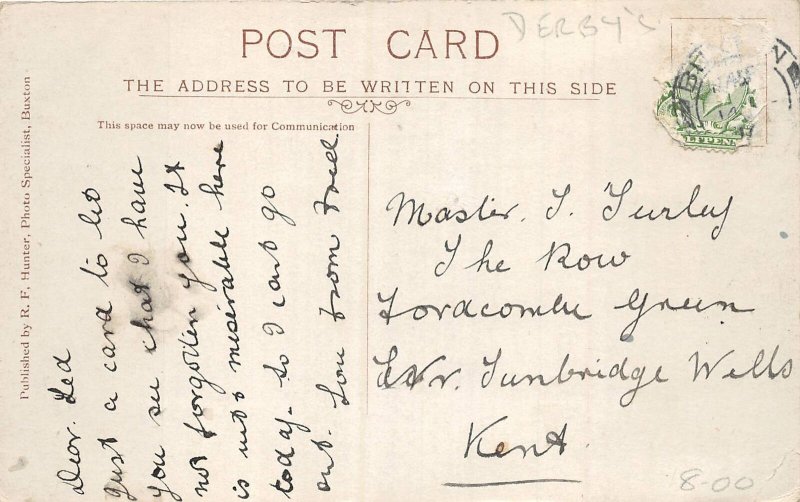 DERBY'S
POST CARD
THE ADDRESS TO BE WRITTEN ON THIS SIDE
This space may now be used for Communication
Published by R. F. Hunter, Photo Specialist, Buxton
Dear. Ted
Just a card to let
you see that I have
not forgotten you. It
is wet & miserable here
today - so I cant go
out. Love from Fred.
Master. T. Turley
The Row
Fordcombe Green
Nr. Tunbridge Wells
Kent.
LFPEN
8-00